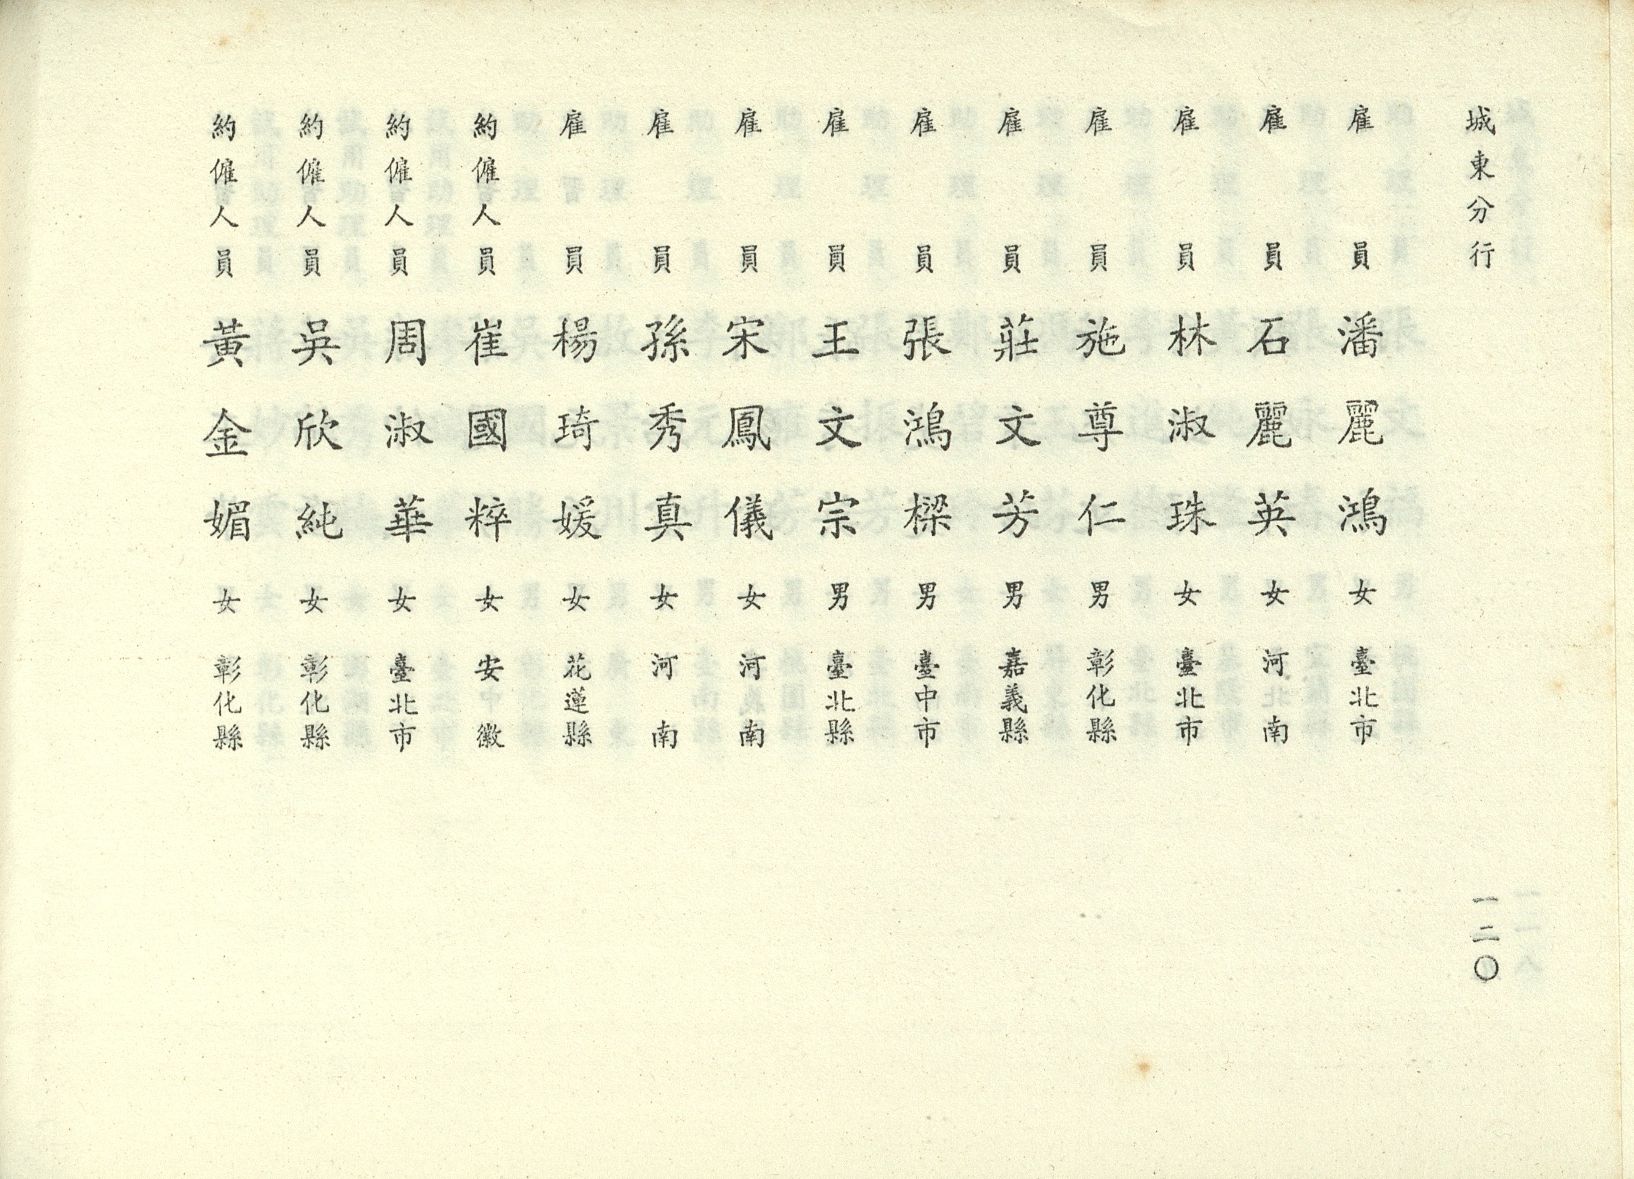 城東分行 一二〇
雇員 潘麗鴻 女 臺北市
雇員 石麗英 女 河南
雇員 林淑珠 女 臺北市
雇員 施尊仁 男 彰化縣
雇員 莊文芳 男 嘉義縣
雇員 張鴻樑 男 臺中市
雇員 王文宗 男 臺北縣
雇員 宋鳳儀 女 河南
雇員 孫秀真 女 河南
雇員 楊琦媛 女 花蓮縣
約僱人員 崔國粹 女 安徽
約僱人員 周淑華 女 臺北市
約僱人員 吳欣純 女 彰化縣
約僱人員 黃金媚 女 彰化縣